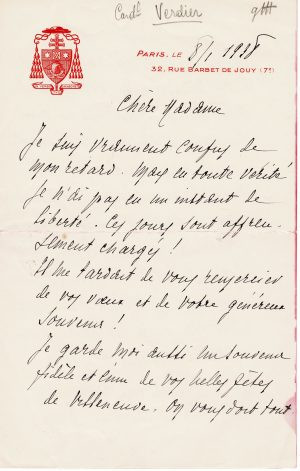 Card^l Verdier
PARIS, LE 8/1 1938
32, RUE BARBET DE JOUY (7e)
Chère Madame
Je suis vraiment confus de
mon retard. Mais en toute vérité
je n'ai pas eu un instant de
liberté. Ces jours sont affreu-
sement chargés !
Il me tardait de vous remercier
de vos vœux et de votre généreux
souvenir !
Je garde moi aussi un souvenir
fidèle et ému de vos belles fêtes
de Villeneuve. On vous doit tout